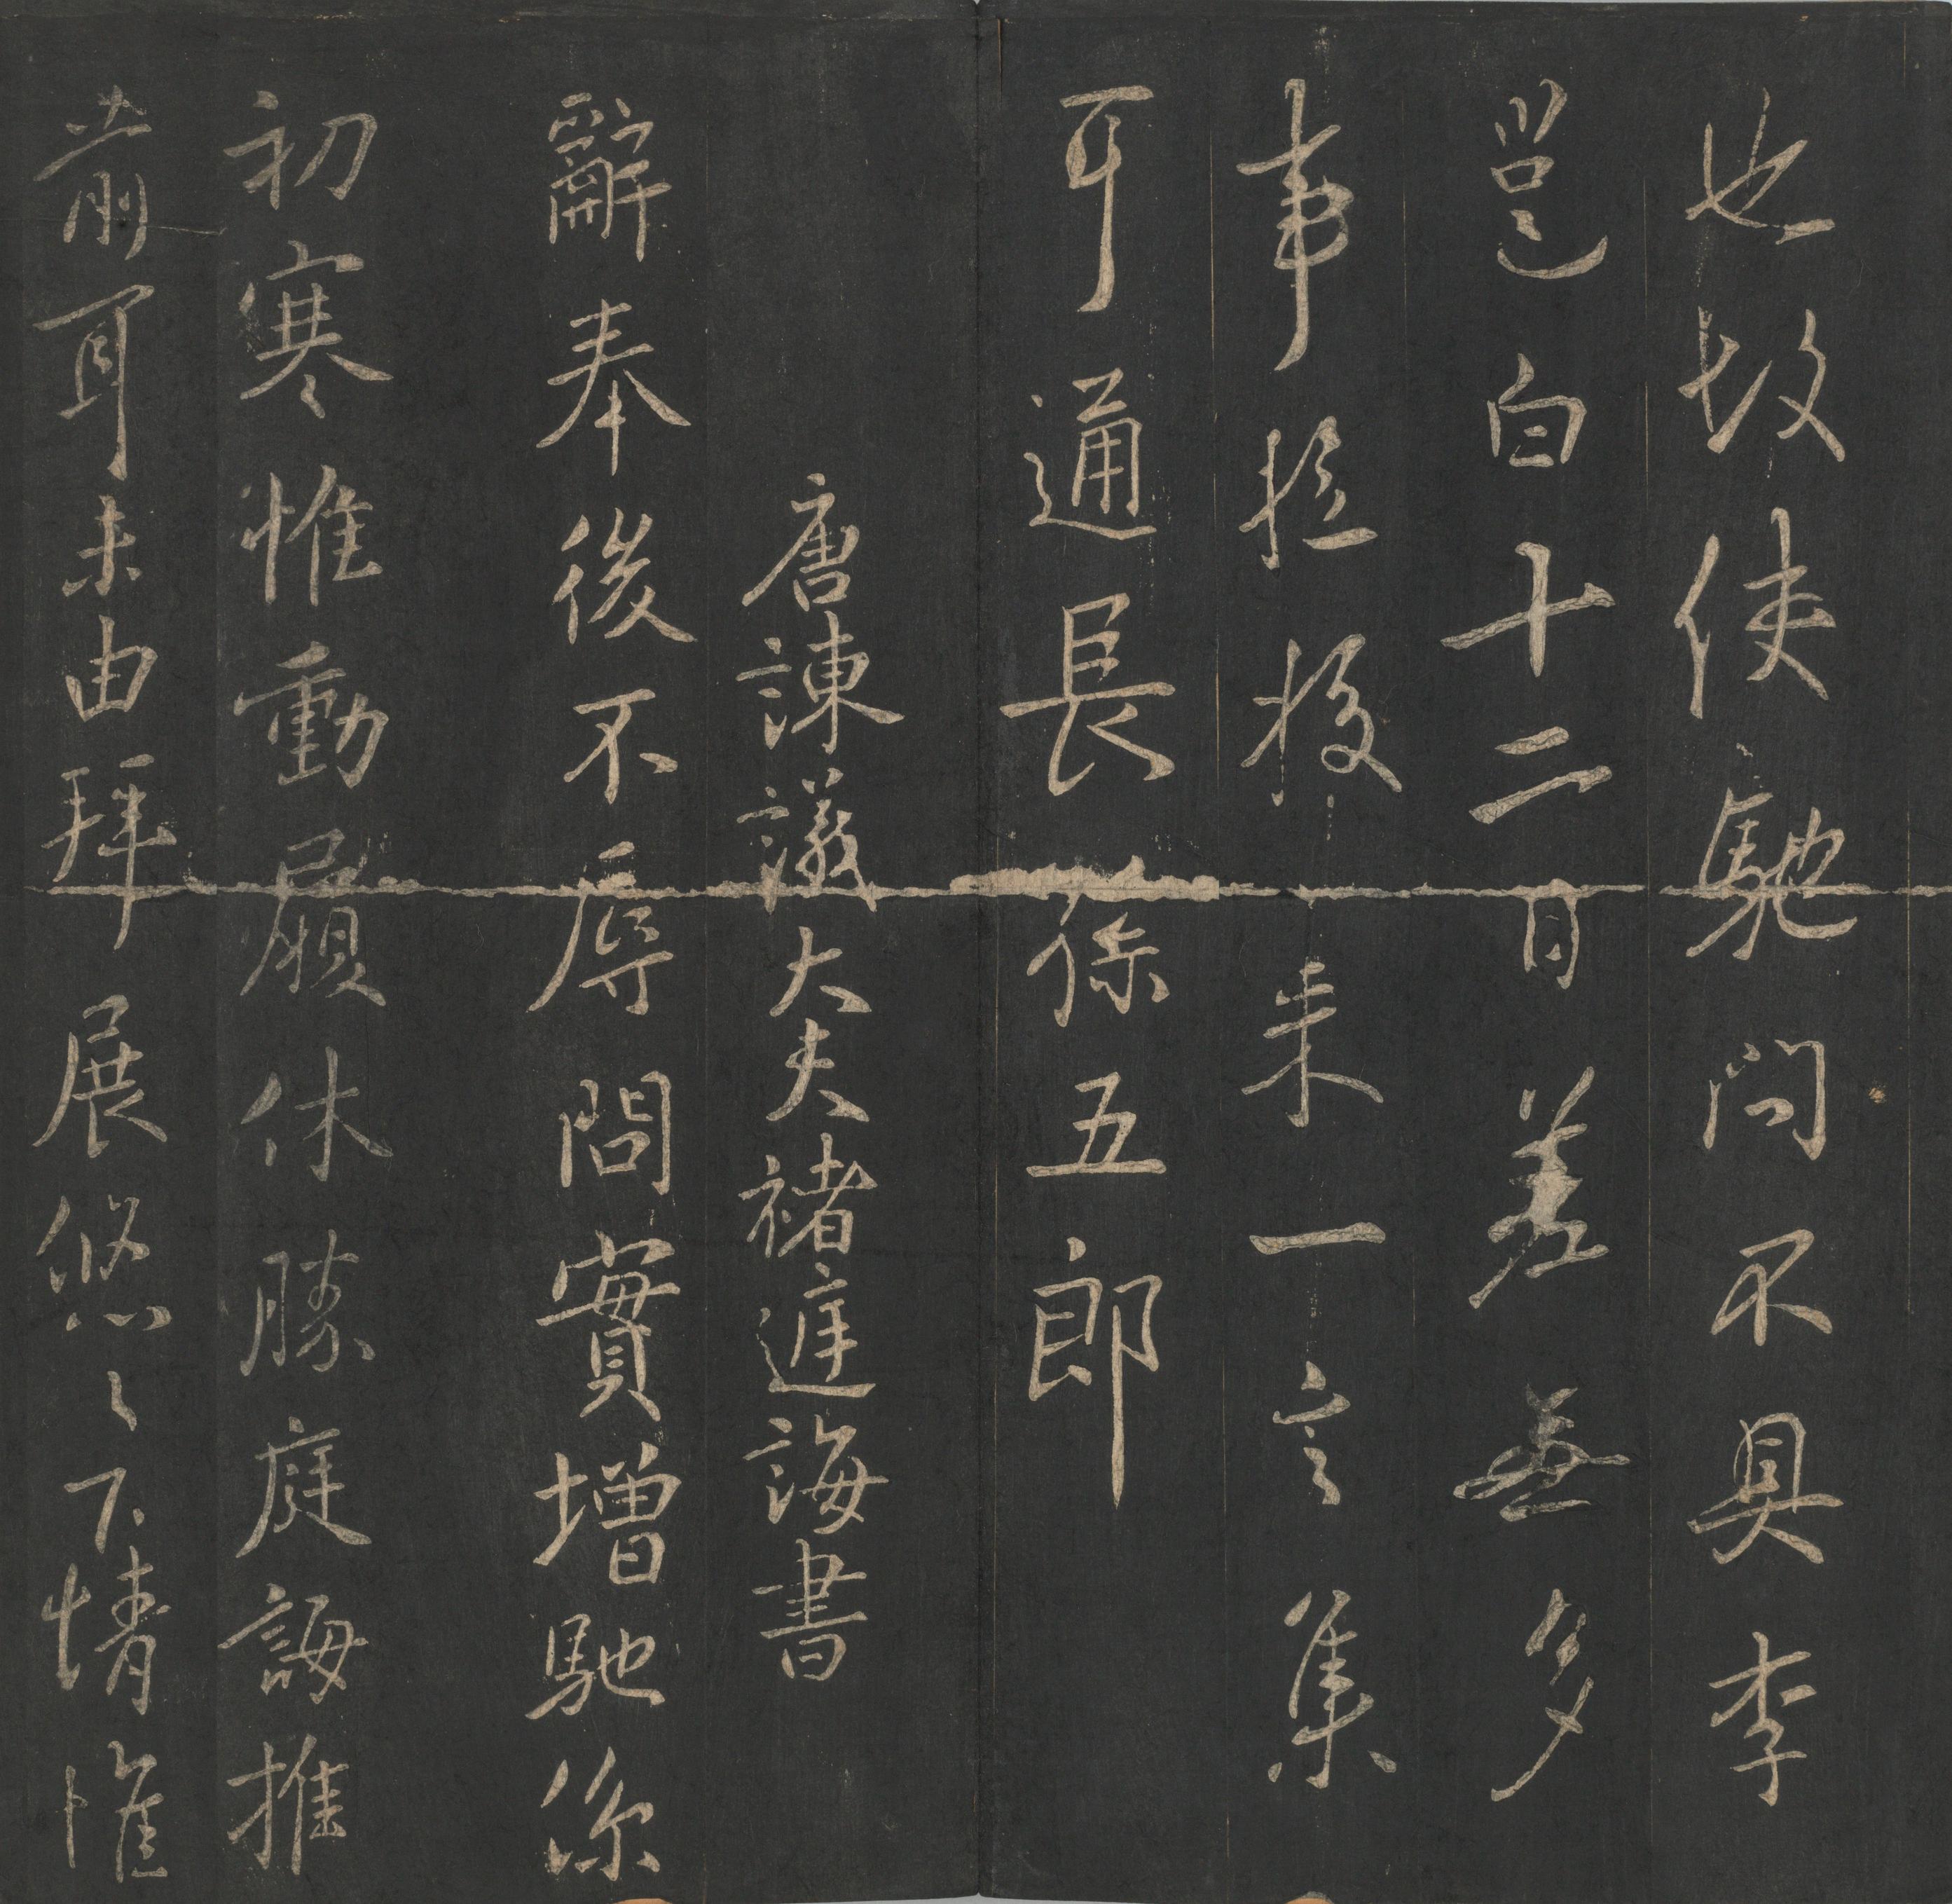 也故使馳問不具李
邕白十二日差無多
事拉掇来一言集
耳通長孫五郎
唐諫議大夫褚遂誨書
辭奉後不辱問實增馳係
初寒惟動履休勝庭誨推
前耳未由拜展悠々下情惟